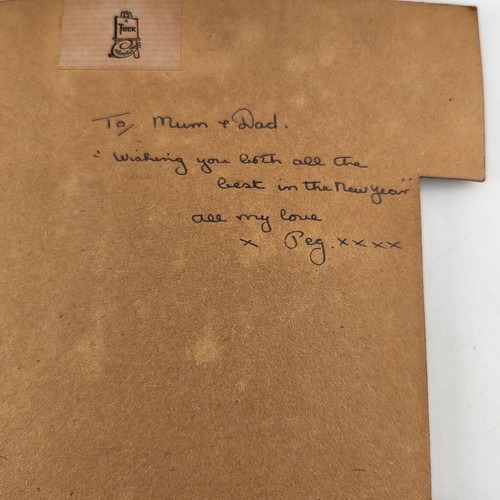 A
TUCK
To/ Mum & Dad.
"Wishing you both all the
best in the New Year"
all my love
x Peg. xxxx